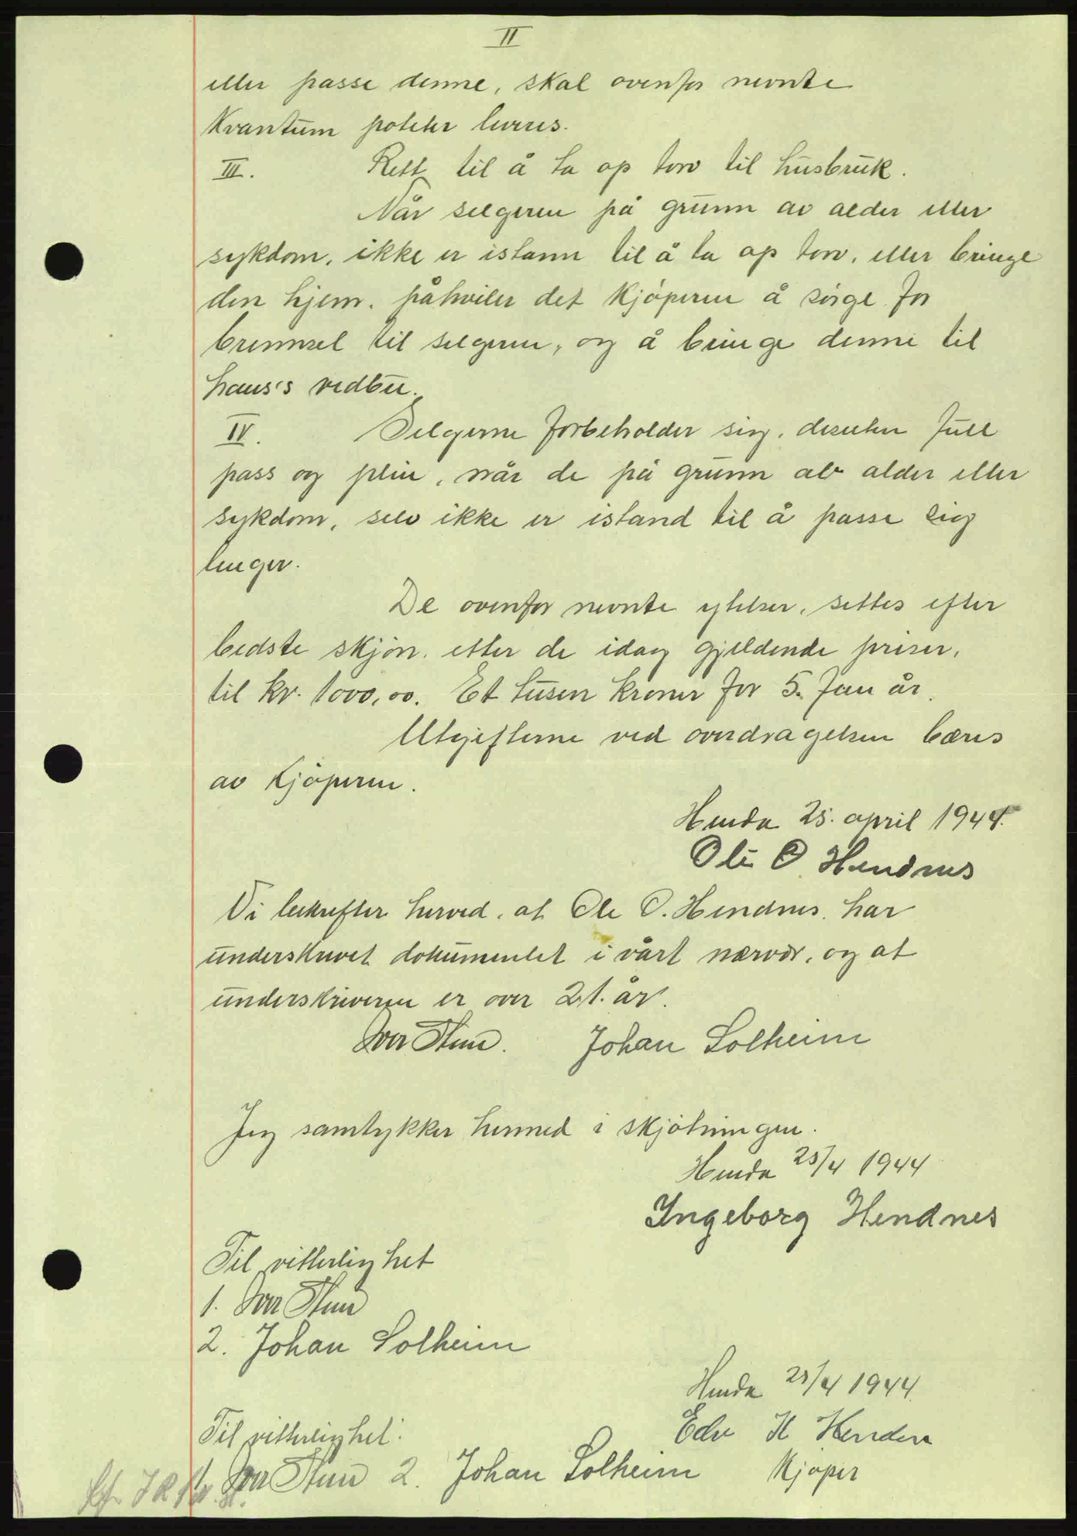 II
eller passe denne, skal ovenfor nevnte
Kvantum poteter leveres.
III. Rett til å ta op torv til husbruk.
Når selgeren på grunn av alder eller
sykdom, ikke er istann til å ta op torv, eller bringe
den hjem, påhviler det Kjøperen å sørge for
brennsel til selgeren, og å bringe denne til
hans's vedbu.
IV. Selgerne forbeholder sig, desuten full
pass og pleie, når de på grunn av alder eller
sykdom, selv ikke er istand til å passe sig
lenger.
De ovenfor nevnte ytelser, settes efter
bedste skjøn, etter de idag gjeldende priser,
til kr. 1000,00. Et tusen kroner for 5. Fem år.
Utgifterne ved overdragelsen bæres
av Kjøperen.
Henda 25. april 1944.
Ole O Hendnes
Vi bekrefter herved, at Ole O. Hendnes har
underskrevet dokumentet i vårt nærvær, og at
underskriveren er over 21. år.
Iver Stene. Johan Solheim
Jeg samtykker hermed i skjøtningen.
Henda 25/4 1944
Ingeborg Hendnes
Til vitterlighet
1. Iver Stene
2. Johan Solheim
Henda 25/4 1944
Edv H Henden
Til vitterlighet:
1. Iver Stene 2. Johan Solheim Kjøper